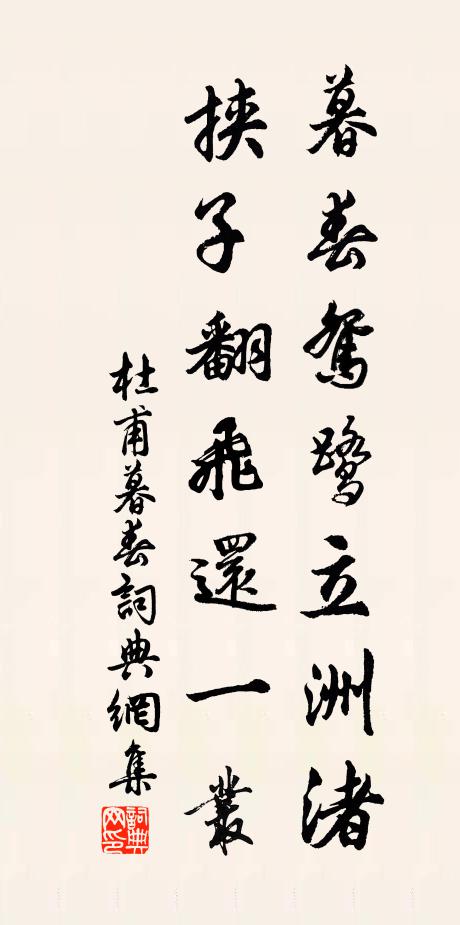 暮春鴛鷺立洲渚
挾子翻飛還一叢
杜甫暮春詞典網集
詞典网印